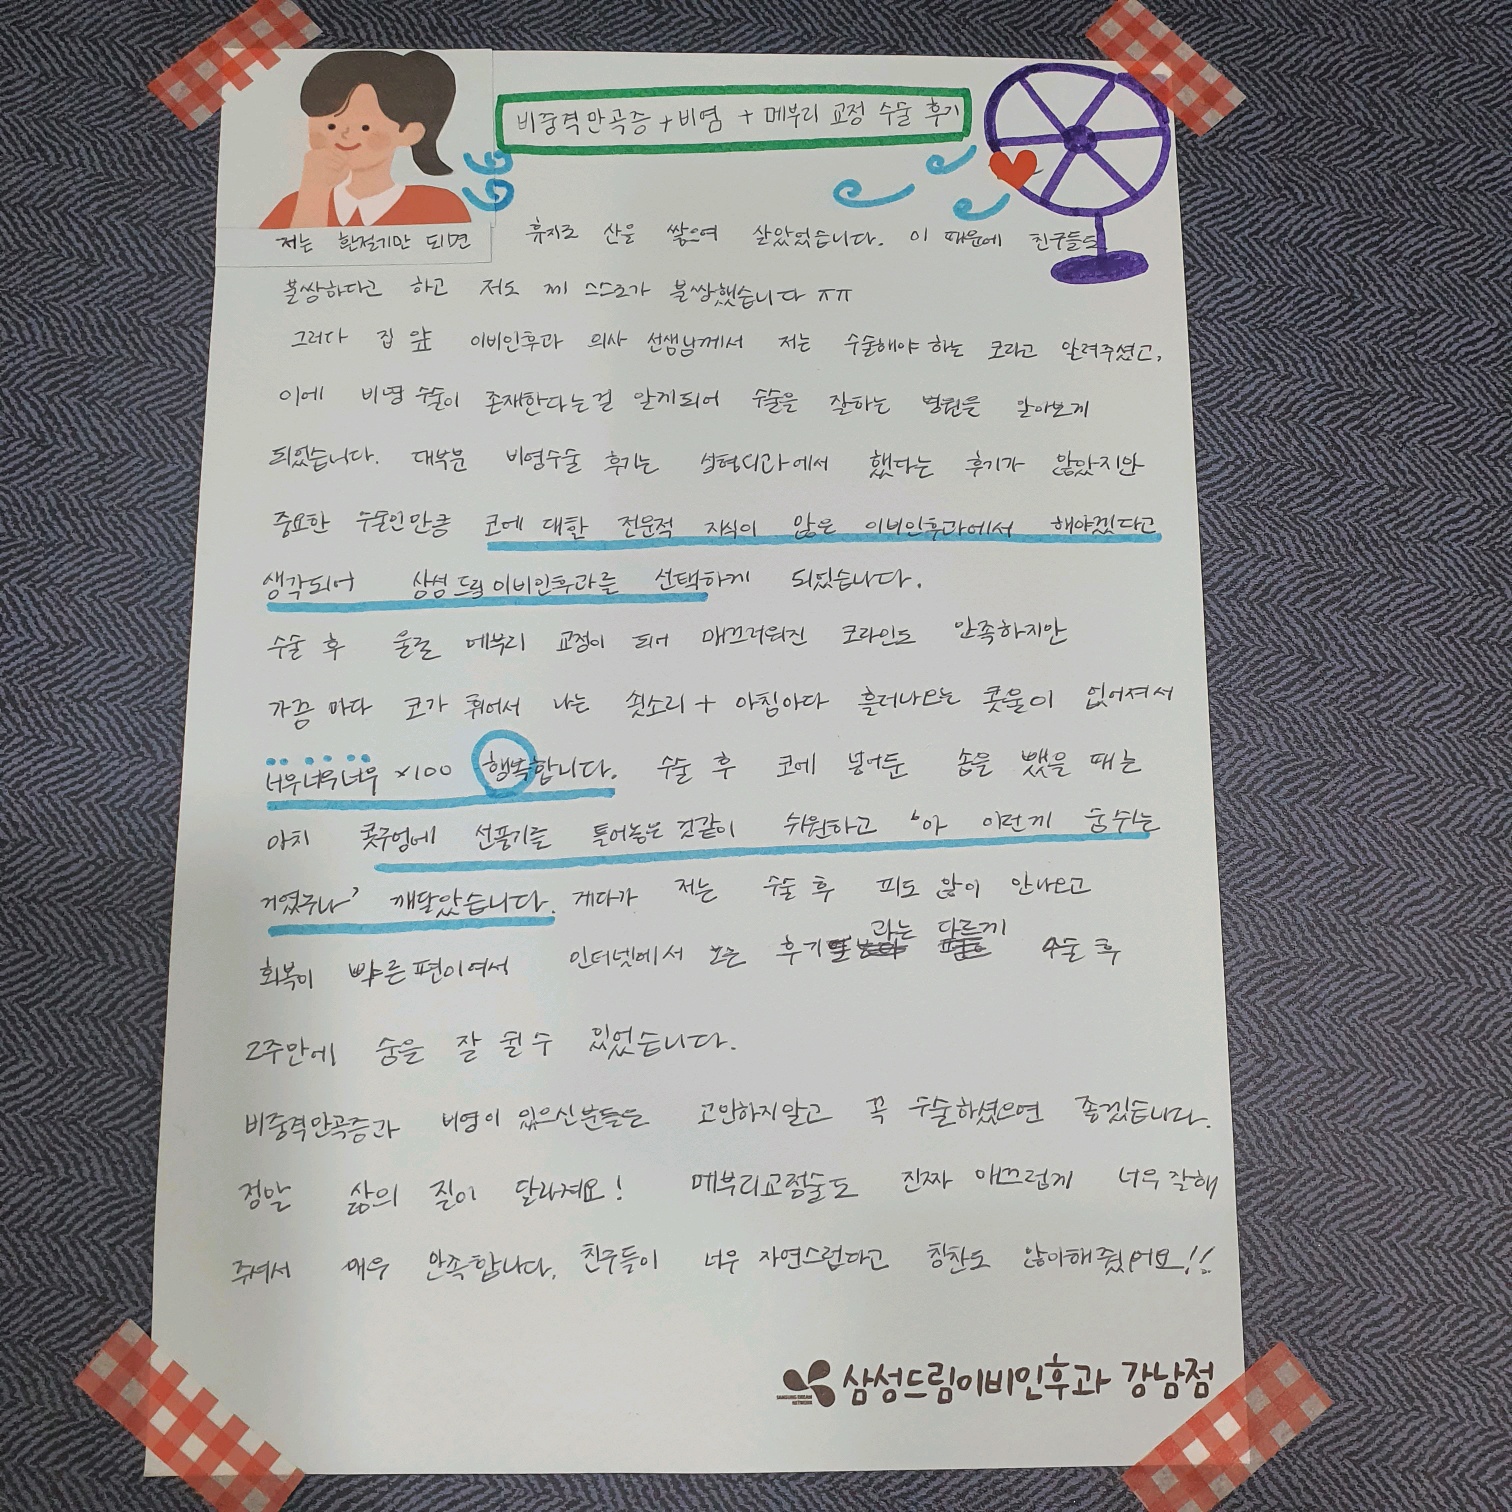 비중격만곡증 + 비염 + 메부리 교정 수술 후기
저는 환절기만 되면 휴지로 산을 쌓으며 살았었습니다. 이 때문에 친구들도
불쌍하다고 하고 저도 제 스스로가 불쌍했습니다 ㅠㅠ
그러다 집 앞 이비인후과 의사 선생님께서 저는 수술해야 하는 코라고 알려주셨고,
이에 비염 수술이 존재한다는걸 알게되어 수술을 잘하는 병원을 알아보게
되었습니다. 대부분 비염수술 후기는 성형외과에서 했다는 후기가 많았지만
중요한 수술인만큼 코에 대한 전문적 지식이 많은 이비인후과에서 해야겠다고
생각되어 삼성드림이비인후과를 선택하게 되었습니다.
수술 후 물론 메부리 교정이 되어 매끄러워진 코라인도 만족하지만
가끔 마다 코가 휘어서 나는 쇳소리 + 아침마다 흘러나오는 콧물이 없어져서
너무너무너무 x100 행복합니다. 수술 후 코에 넣어둔 솜을 뺐을 때는
마치 콧구멍에 선풍기를 틀어놓은 것같이 시원하고 '아 이런게 숨쉬는
거였구나' 깨달았습니다. 게다가 저는 수술 후 피도 많이 안나오고
회복이 빠른편이여서 인터넷에서 보는 후기과는 다르게 수술 후
2주만에 숨을 잘 쉴 수 있었습니다.
비중격만곡증과 비염이 있으신분들은 고민하지말고 꼭 수술하셨으면 좋겠습니다.
정말 삶의 질이 달라져요! 메부리교정술도 진짜 매끄럽게 너무 잘해
주셔서 매우 만족합니다. 친구들이 너무 자연스럽다고 칭찬도 많이해줬어요!!
SAMSUNG DREAM
NETWORK
삼성드림이비인후과 강남점